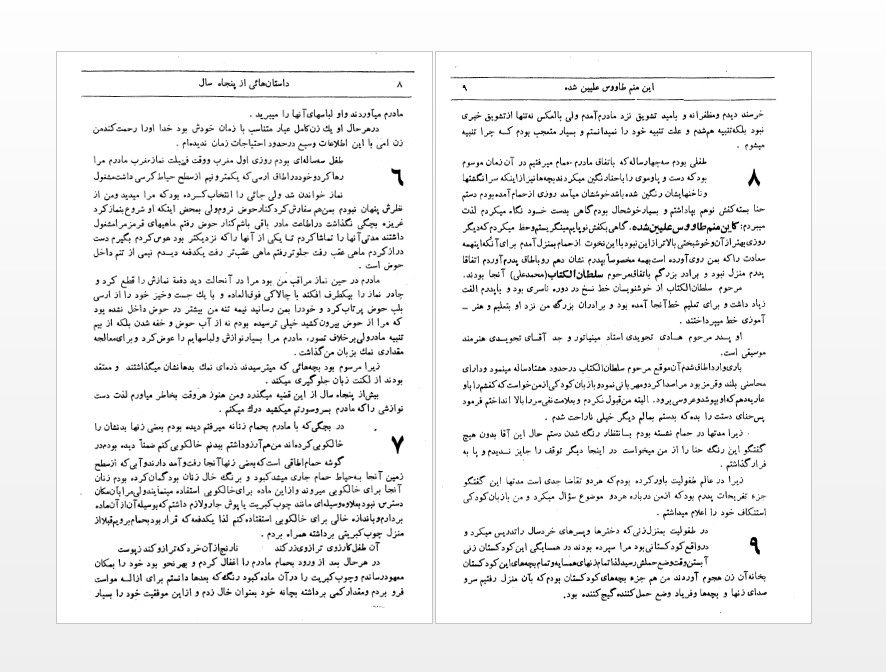 ۸ داستان‌هائی از پنجاه سال
مادرم میآوردند واو لباسهای آنها را میبرید .
درهرحال او یك زن کامل عیار متناسب با زمان خودش بود خدا اورا رحمت کند من
زن امی با این اطلاعات وسیع درحدود احتیاجات زمان ندیده‌ام .
۶
طفل سه‌ساله‌ای بودم روزی اول مغرب ووقت فضیلت نماز مغرب مادرم مرا
رها کرد و خود در اطاق ارسی که یکمتر و نیم از سطح حیاط کرسی داشت مشغول
نماز خواندن شد ولی جائی را انتخاب کرده بود که مرا میدید ومن از
نظرش پنهان نبودم بمن هم سفارش کرد کنار حوض نروم ولی بمحض اینکه او شروع بنماز کرد
غریزه بچگی نگذاشت در اطاعت مادر باقی باشم کنار حوض رفتم ماهیهای قرمز مرا مشغول
داشتند مدتی آنها را تماشا کردم تا یکی از آنها را که نزدیکتر بود هوس کردم بگیرم دست
دراز کردم ماهی عقب رفت جلوتر رفتم ماهی عقب‌تر رفت یکدفعه دیدم نیمی از تنم داخل
حوض است .
مادرم در حین نماز مراقب من بود مرا در آنحالت دید دفعة نمازش را قطع کرد و
چادر نماز را بیکطرف افکند با چالاکی فوق‌العاده و با یك جست وخیز خود را از ارسی
بلب حوض پرتاب کرد و خود را بمن رسانید نیمه تنه من بیشتر در حوض داخل نشده بود
که مرا از حوض بیرون کشید خیلی ترسیده بودم نه از آب حوض و خفه شدن بلکه از بیم
تنبیه مادر ولی برخلاف تصور، مادرم مرا بسیار نوازش ولباسهایم را عوض کرد و برای معالجه
مقداری نمك بزبان من گذاشت .
زیرا مرسوم بود بچه‌هائی که میترسیدند ذره‌ای نمك بدهانشان میگذاشتند و معتقد
بودند از لکنت زبان جلوگیری میکند .
بیش از پنجاه سال از این قضیه میگذرد ومن هنوز هروقت بخاطر میاورم لذت دست
نوازشی را که مادرم بسر وصورتم میکشید درك میکنم .
۷
در بچگی که با مادرم بحمام زنانه میرفتم دیده بودم بعضی زنها بدنشان را
خالکوبی کرده‌اند من هم آرزو داشتم ببدنم خالکوبی کنم ضمناً دیده بودم در
گوشه حمام اطاقی است که بعضی زنها آنجا رفت و آمد دارند و آبی که از سطح
زمین آنجا بحیاط حمام جاری میشد کبود و برنگ خال زنان بود گمان کرده بودم زنان
آنجا برای خالکوبی میروند و از این ماده برای خالکوبی استفاده مینمایند ولی مرا بآن مکان
دسترس نبود بعلاوه وسیله‌ای مانند چوب کبریت یا پوش جارو لازم داشتم که بوسیله آن از آن ماده
بردارم و باندازه خالی برای خالکوبی استفاده کنم لذا یکدفعه که قرار بود بحمام برویم قبلا از
منزل چوب کبریتی برداشته همراه بردم .
آن طفل کارزوی ترازوی زر کند نارنج از آن خرد که ترازو کند ز پوست
در هرحال بعد از ورود بحمام مادرم را اغفال کردم و بهر نحو بود خود را بمکان
معهود رساندم وچوب کبریت را درآن ماده کبود رنگ که بعدها دانستم برای ازاله مواست
فرو بردم ومقدار کمی برداشته بچانه خود بعنوان خال زدم و ازاین موفقیت خود را بسیار
این منم طاووس علیین شده ۹
خرسند دیدم ومظفرانه و بامید تشویق نزد مادرم آمدم ولی بالعکس نه‌تنها از تشویق خبری
نبود بلکه تنبیه هم شدم و علت تنبیه خود را نمیدانستم و بسیار متعجب بودم کـه چرا تنبیه
میشوم .
۸
طفلی بودم سه‌چهار ساله که باتفاق مادرم بحمام میرفتیم در آن زمان موسوم
بود که دست و پاوموی را باحنا رنگین میکردند بچه‌ها نیز از اینکه سر انگشتها
وناخنهایشان رنگین شده باشد خوششان میآمد روزی از حمام آمده بودم دستم
حنا بسته کفش نوهم بپا داشتم و بسیار خوشحال بودم گاهی بدست خود نگاه میکردم لذت
میبردم: کاین منم طاووس علیین شده. گاهی بکفش نو پایم مینگریستم و حظ میکردم که دیگر
روزی بهتر از آن وخوشبختی بالاتر از این نبود با این نخوت از حمام بمنزل آمدم برای آنکه اینهمه
سعادت را که بمن روی آورده است بهمه مخصوصاً بپدرم نشان دهم رو باطاق پدرم آوردم اتفاقا
پدرم منزل نبود و برادر بزرگم باتفاق مرحوم سلطان‌الکتاب(محمدعلی) آنجا بودند.
مرحوم سلطان‌الکتاب از خوشنویسان خط نسخ در دوره ناصری بود و باپدرم الفت
زیاد داشت و برای تعلیم خط آنجا آمده بود و برادران بزرگ من نزد او بتعلیم و هنر –
آموزی خط میپرداختند .
او پدر مرحوم هادی تجویدی استاد مینیاتور و جد آقای تجویدی هنرمند
موسیقی است.
باری وارد اطاق شدم آن موقع مرحوم سلطان‌الکتاب درحدود هشتاد ساله مینمود و دارای
محاسنی بلند وقرمز بود مرا صدا کرد و مهربانی نمود و بازبان کودکی از من خواست که کفشم را باو
عاریه دهم که او بپوشد و عروسی برود. البته من قبول نکردم و بعلامت نفی سر را بالا انداختم فرمود
پس حنای دستت را بده که بدستم بمالم دیگر خیلی ناراحت شدم .
زیرا مدتها در حمام نشسته بودم باانتظار رنگ شدن دستم حال این آقا بدون هیچ
گفتگو این رنگ حنا را از من میخواست در اینجا دیگر توقف را جایز ندیدم و پا به
فرار گذاشتم .
زیرا در عالم طفولیت باور کرده بودم که هردو تقاضا جدی است مدتها این گفتگو
جزء تفریحات پدرم بود که ازمن درباره هردو موضوع سؤال میکرد و من بازبان کودکی
استنکاف خود را اعلام میداشتم .
۹
در طفولیت بمنزل زنی که دخترها وپسرهای خردسال را تدریس میکرد و
درواقع کودکستانی بود مرا سپرده بودند در همسایگی این کودکستان زنی
آبستن وقت وضع حملش رسید لذا تمام زنهای همسایه و تمام بچه‌های این کودکستان
بخانه آن زن هجوم آوردند من هم جزء بچه‌های کودکستان بودم که بآن منزل رفتیم سرو
صدای زنها و بچه‌ها وفریاد وضع حمل کننده گیج کننده بود.